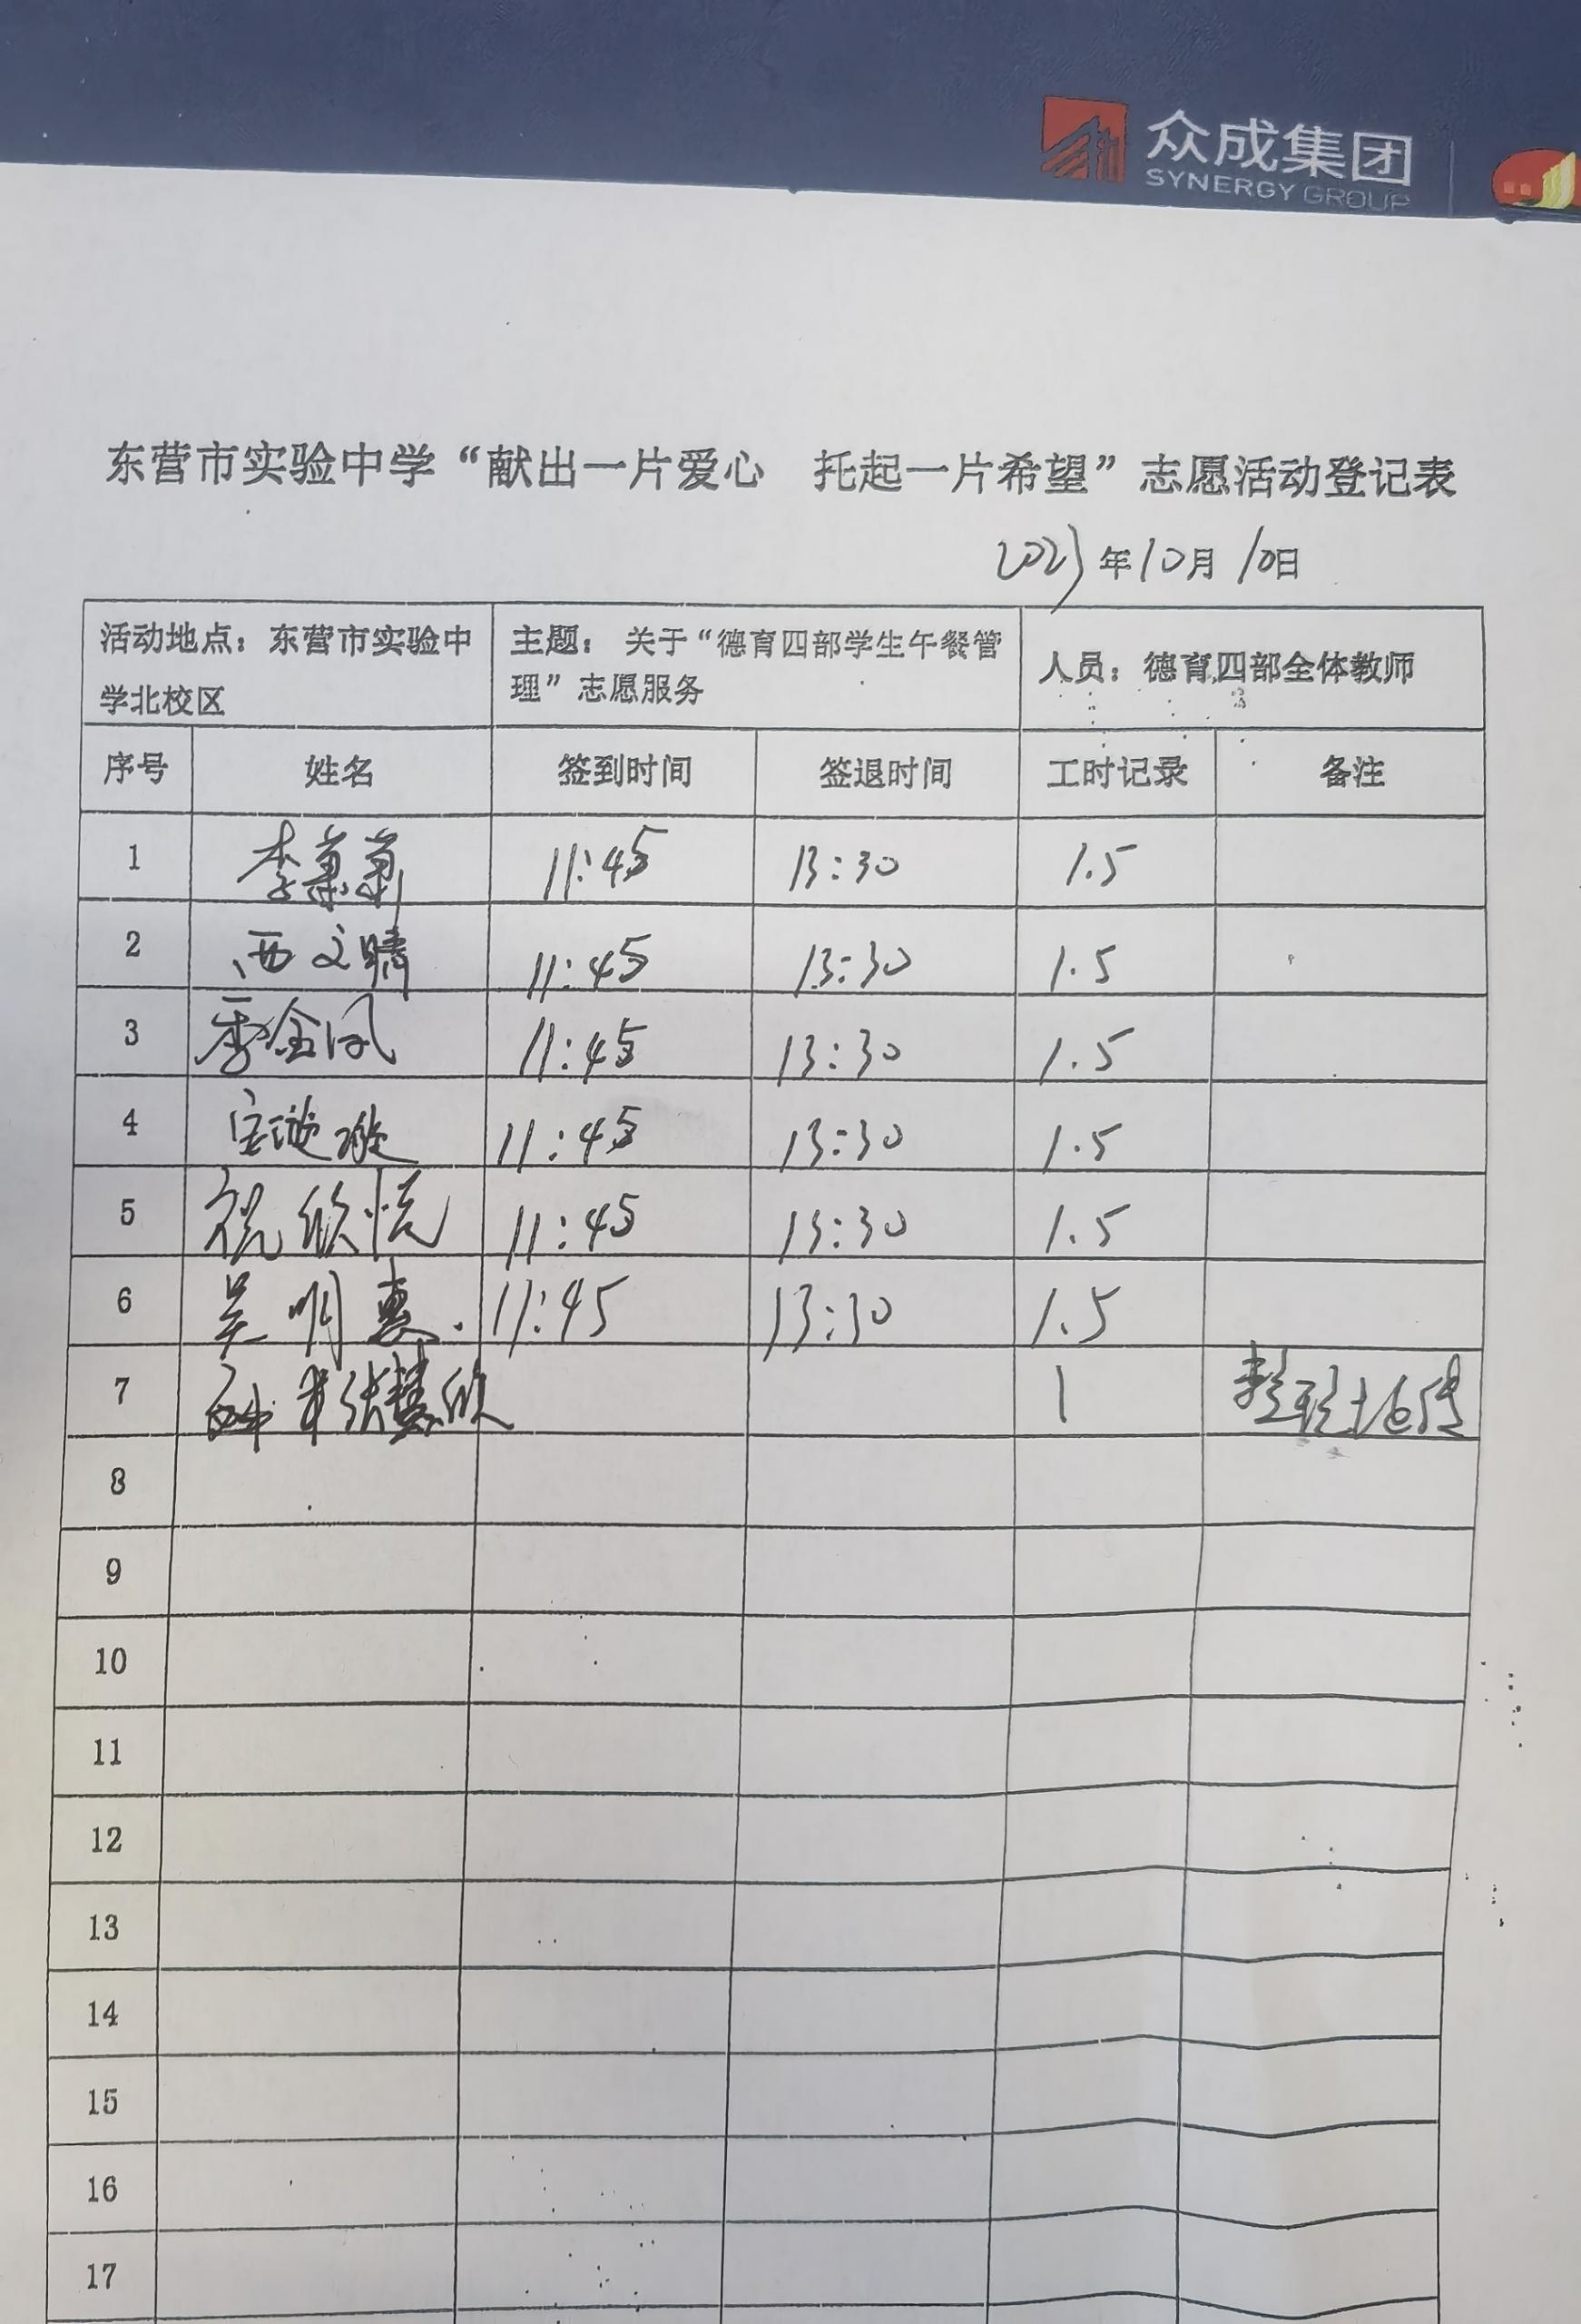 众成集团
SYNERGY GROUP
东营市实验中学“献出一片爱心 托起一片希望”志愿活动登记表
2023年10月10日
活动地点：东营市实验中学北校区 主题： 关于“德育四部学生午餐管理”志愿服务 人员：德育四部全体教师
序号 姓名 签到时间 签退时间 工时记录 备注
1 李萧萧 11:45 13:30 1.5
2 西文晴 11:45 13:30 1.5
3 季金凤 11:45 13:30 1.5
4 11:45 13:30 1.5
5 祝欣悦 11:45 13:30 1.5
6 吴明惠 11:45 13:30 1.5
7 张慧欣 1
8
9
10
11
12
13
14
15
16
17